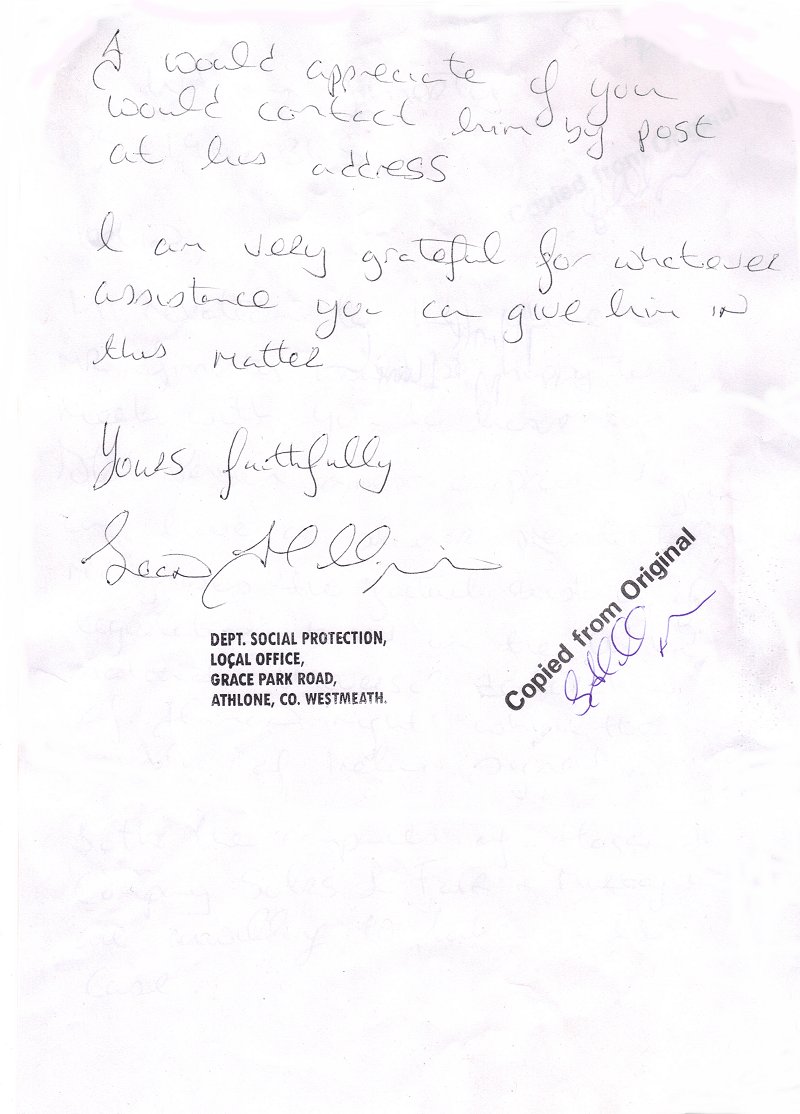 I would appreciate if you
would contact him by post
at his address
I am very grateful for whatever
assistance you can give him in
this matter
Yours faithfully
Sean
DEPT. SOCIAL PROTECTION,
LOCAL OFFICE,
GRACE PARK ROAD,
ATHLONE, CO. WESTMEATH.
Copied from Original